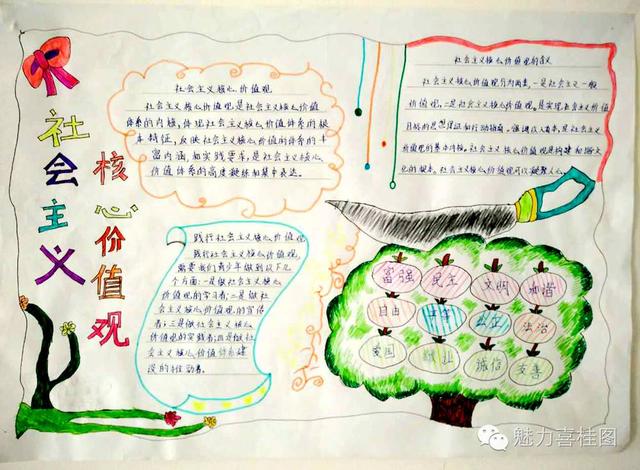 社会主义
核心价值观
社会主义核心价值观
社会主义核心价值观是社会主义核心价值
体系的内核,体现社会主义核心价值体系的根
本特征,反映社会主义核心价值体系的丰
富内涵和实践要求,是社会主义核心
价值体系的高度凝练和集中表达。
社会主义核心价值观的含义
社会主义核心价值观分为两类,一是社会主义一般
价值观,二是社会主义核心价值观。是实现社会主义价值
目标的思想保证和行动指南。强调以人为本,是社会主义
价值观的基本内核。社会主义核心价值观是构建和谐文
化的根本。社会主义核心价值观可以凝聚人心。
践行社会主义核心价值观
践行社会主义核心价值观,
需要我们青少年做到以下几
个方面:一是做社会主义核心
价值观的学习者;二是做社
会主义核心价值观的宣传
者;三是做社会主义核心
价值观的实践者;四是做社
会主义核心价值体系建
设的推动者。
富强 民主 文明 和谐
自由 平等 公正 法治
爱国 敬业 诚信 友善
魅力喜桂图